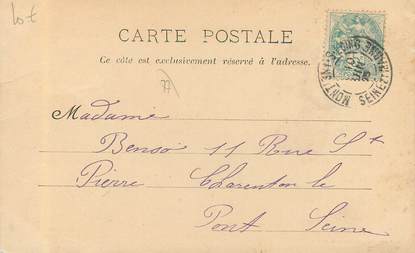 lot
CARTE POSTALE
Ce côté est exclusivement réservé à l'adresse.
77
Madame
Benso 11 Rue St
Pierre Charenton le
Pont Seine
SEINE